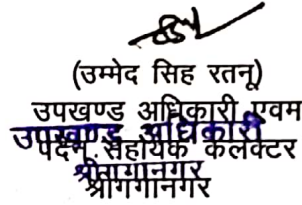 (उम्मेद सिह रतनू)
उपखण्ड अधिकारी एवम
उपखण्ड अधिकारी
पदेन सहायक कलेक्टर
श्रीगंगानगर
श्रीगंगानगर